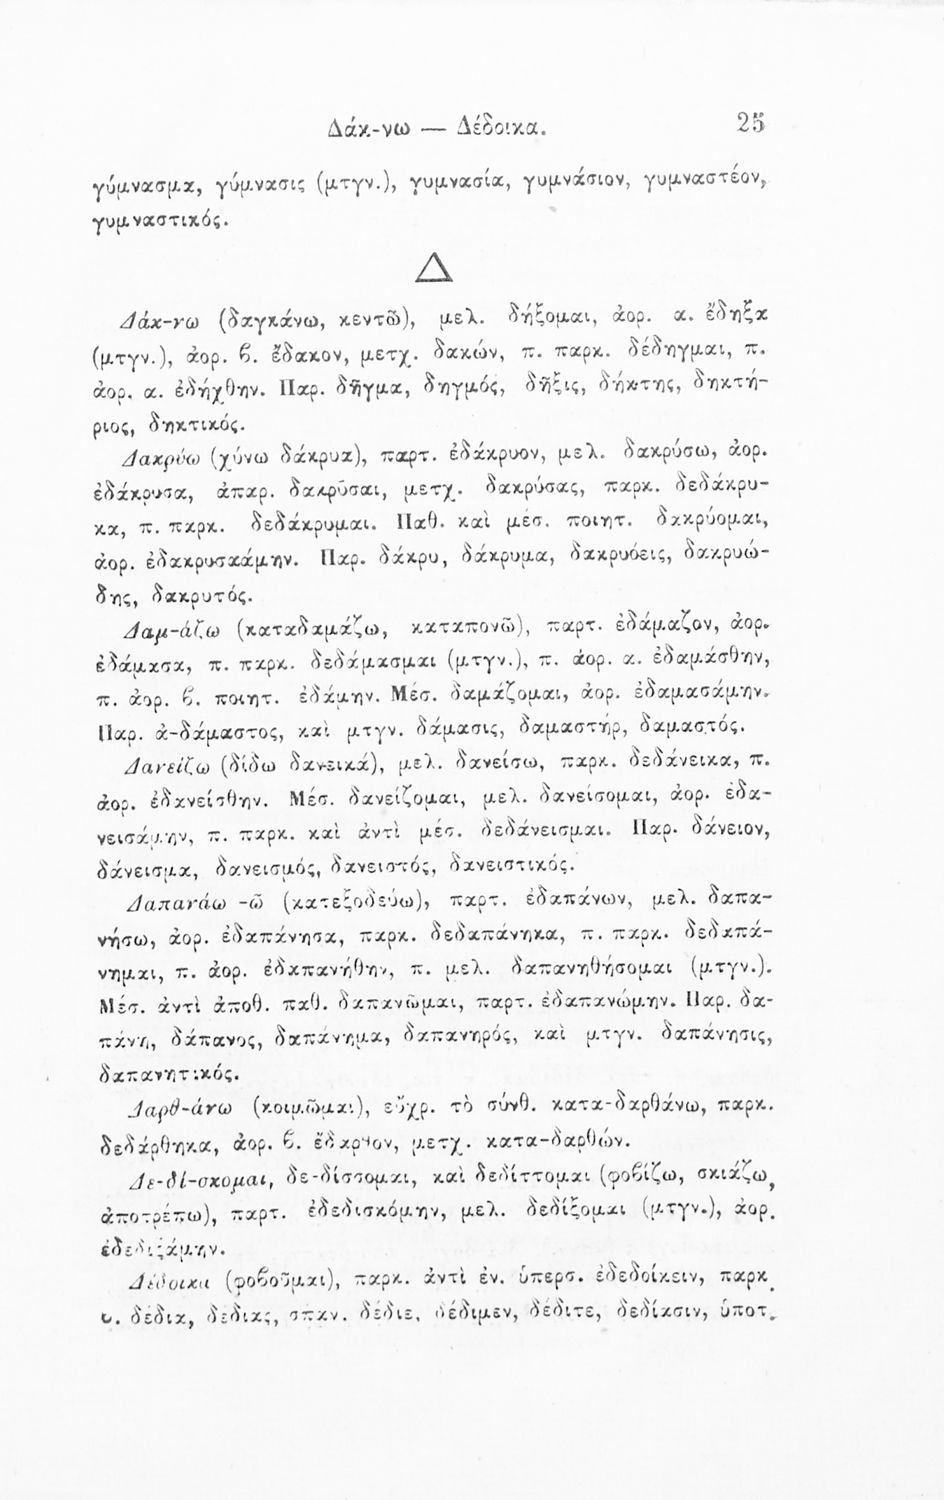 Δάκ-νω — Δέδοικα. 25
γύμνασμα, γύμνασις (μτγν.), γυμνασία, γυμνάσιον, γυμναστέον,
γυμναστικός.
Δ
Δάκ-νω (δαγκάνω, κεντῶ), μελ. δήξομαι, ἀορ. α. ἔδηξα
(μτγν.), ἀορ. β. ἔδακον, μετχ. δακών, π. παρκ. δέδηγμαι, π.
ἀορ. α. ἐδήχθην. Παρ. δῆγμα, δηγμός, δῆξις, δήκτης, δηκτή-
ριος, δηκτικός.
Δακρύω (χύνω δάκρυα), παρτ. ἐδάκρυον, μελ. δακρύσω, ἀορ.
ἐδάκρυσα, ἀπαρ. δακρῦσαι, μετχ. δακρύσας, παρκ. δεδάκρυ-
κα, π. παρκ. δεδάκρυμαι. Παθ. καὶ μέσ. ποιητ. δακρύομαι,
ἀορ. ἐδακρυσαάμην. Παρ. δάκρυ, δάκρυμα, δακρυόεις, δακρυώ-
δης, δακρυτός.
Δαμ-άζω (καταδαμάζω, καταπονῶ), παρτ. ἐδάμαζον, ἀορ.
ἐδάμασα, π. παρκ. δεδάμασμαι (μτγν.), π. ἀορ. α. ἐδαμάσθην,
π. ἀορ. β. ποιητ. ἐδάμην. Μέσ. δαμάζομαι, ἀορ. ἐδαμασάμην.
Παρ. ἀ-δάμαστος, καὶ μτγν. δάμασις, δαμαστήρ, δαμαστός.
Δανείζω (δίδω δανεικά), μελ. δανείσω, παρκ. δεδάνεικα, π.
ἀορ. ἐδανείσθην. Μέσ. δανείζομαι, μελ. δανείσομαι, ἀορ. ἐδα-
νεισάμην, π. παρκ. καὶ ἀντὶ μέσ. δεδάνεισμαι. Παρ. δάνειον,
δάνεισμα, δανεισμός, δανειστός, δανειστικός.
Δαπανάω -ῶ (κατεξοδεύω), παρτ. ἐδαπάνων, μελ. δαπα-
νήσω, ἀορ. ἐδαπάνησα, παρκ. δεδαπάνηκα, π. παρκ. δεδαπά-
νημαι, π. ἀορ. ἐδαπανήθην, π. μελ. δαπανηθήσομαι (μτγν.).
Μέσ. ἀντὶ ἀποθ. παθ. δαπανῶμαι, παρτ. ἐδαπανώμην. Παρ. δα-
πάνη, δάπανος, δαπάνημα, δαπανηρός, καὶ μτγν. δαπάνησις,
δαπανητικός.
Δαρθ-άνω (κοιμῶμαι), εὔχρ. τὸ σύνθ. κατα-δαρθάνω, παρκ.
δεδάρθηκα, ἀορ. β. ἔδαρθον, μετχ. κατα-δαρθών.
Δε-δί-σκομαι, δε-δίσσομαι, καὶ δεδίττομαι (φοβίζω, σκιάζω,
ἀποτρέπω), παρτ. ἐδεδισκόμην, μελ. δεδίξομαι (μτγν.), ἀορ.
ἐδεδιξάμην.
Δέδοικα (φοβοῦμαι), παρκ. ἀντὶ ἐν. ὑπερσ. ἐδεδοίκειν, παρκ.
δέδια, δέδιας, σπαν. δέδιε, δέδιμεν, δέδιτε, δεδίασιν, ὑποτ.